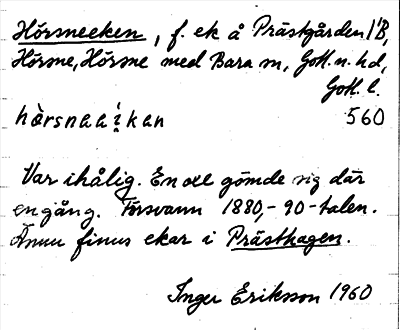 Hörsneeken, f. ek å Prästgården 1/B,
Hörsne, Hörsne med Bara sn, Gotl. n. hd,
Gotl. l.
hò̀rsnaaikan 560
Var ihålig. En oxe gömde sig där
en gång. Försvann 1880,-90-talen.
Ännu finns ekar i Prästhagen.
Inger Eriksson 1960